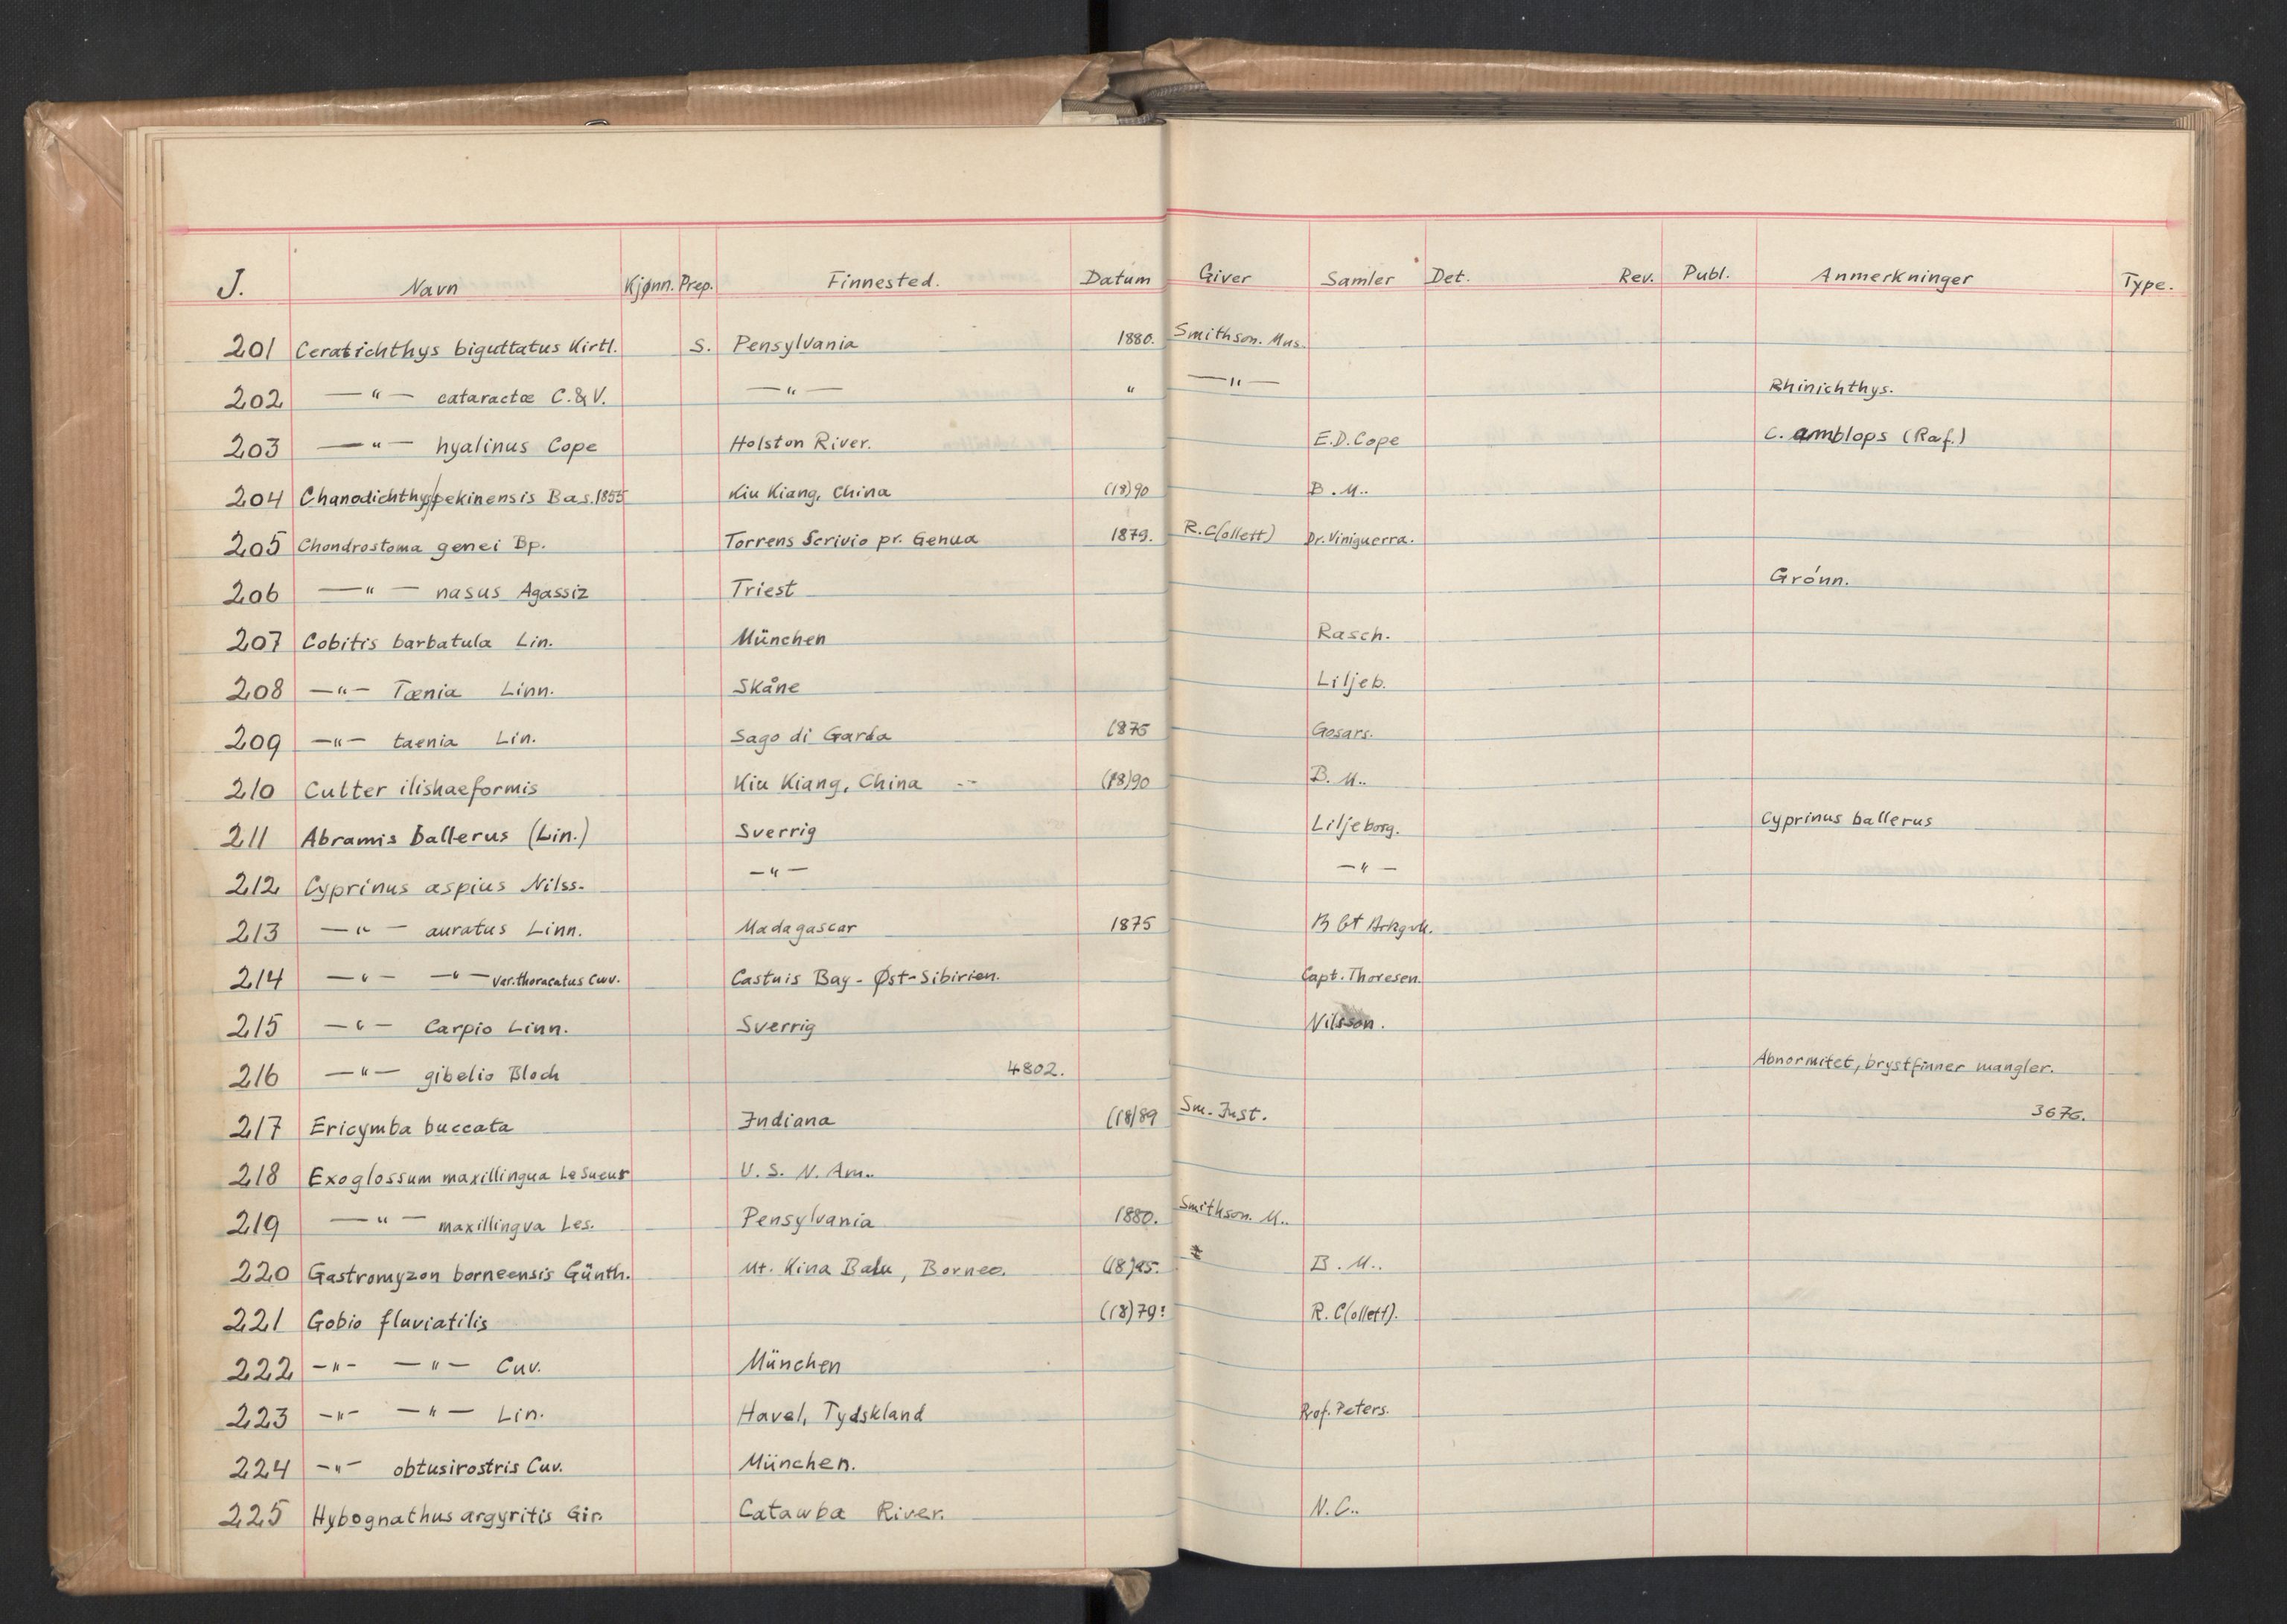 J. Navn Kjønn. Prep. Finnested. Datum Giver Samler Det. Rev. Publ. Anmerkninger Type.
201 Ceratichthys biguttatus Kirtl. S. Pensylvania 1880. Smithson. Mus.
202 —"— cataractæ C.&V. —"— " —"— Rhinichthys.
203 —"— hyalinus Cope Holston River. E.D.Cope C. amblops (Raf.)
204 Chanodichthys/pekinensis Bas.1855 Kiu Kiang, China (18)90 B.M..
205 Chondrostoma genei Bp. Torrens Scrivio pr. Genua 1879. R.C(ollett) Dr.Viniguerra.
206 —"— nasus Agassiz Triest Grønn.
207 Cobitis barbatula Lin. München Rasch.
208 —"— Tænia Linn. Skåne Liljeb.
209 —"— taenia Lin. Sago di Garda 1875 Gosars.
210 Culter ilishaeformis Kiu Kiang, China (18)90 B.M..
211 Abramis ballerus (Lin.) Sverrig Liljeborg. Cyprinus ballerus
212 Cyprinus aspius Nilss. —"— —"—
213 —"— auratus Linn. Madagascar 1875
214 —"— —"— var.thoracatus Cuv. Castuis Bay - Øst-Sibirien. Capt. Thoresen.
215 —"— Carpio Linn. Sverrig Nilsson.
216 —"— gibelio Bloch 4802. Abnormitet, brystfinner mangler.
217 Ericymba buccata Indiana (18)89 Sm. Inst. 3676.
218 Exoglossum maxillingua Le Sueur U. S. N. Am..
219 —"— maxillingva Les. Pensylvania 1880. Smithson. M..
220 Gastromyzon borneensis Günth. Mt. Kina Balu, Borneo. B.M..
221 Gobio fluviatilis (18)79: R. C(ollett).
222 —"— —"— Cuv. München
223 —"— —"— Lin. Havel, Tydskland Prof. Peters.
224 —"— obtusirostris Cuv. München.
225 Hybognathus argyritis Gir. Catawba River. N.C..